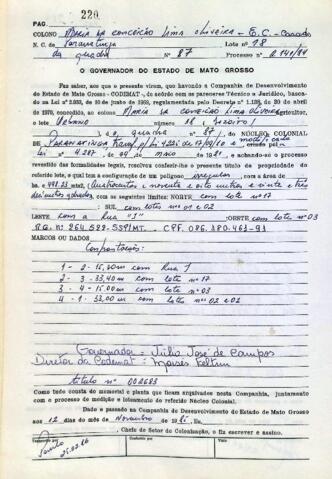 PAG. 220
COLONO Maria da Conceição Lima Oliveira - E.C. - Casada
N. C. de Paranatinga Lote nº 18
da quadra Nº 87 Processo nº
O GOVERNADOR DO ESTADO DE MATO GROSSO
Faz saber, aos que o presente virem, que havendo a Companhia de Desenvolvimento
do Estado de Mato Grosso - CODEMAT -, de acôrdo com os pareceres Técnico e Jurídico, baseados
na Lei nº 2.033, de 10 de junho de 1969, regulamentada pelo Decreto 1.138, de 20 de abril de 1970,
concedido, ao colono Maria da Conceição Lima Oliveira agricultor,
o lote Urbano 18 (dezoito)
da quadra nº 87, do NÚCLEO COLONIAL
DE Paranatinga
Lei nº 4.287 de maio de 1981, e achando-se o processo
revestido das formalidades legais, resolveu conferir-lhe o presente título de propriedade do
referido lote, o qual tem a configuração de um polígono irregular, com a área de
498,23 (quatrocentos e noventa e oito metros e vinte e três
decímetros quadrados, com os seguintes limites: NORTE com lote nº 17
SUL com lotes nºs 01 e 02
LESTE com a Rua "J" OESTE com lote nº 03
R.G. nº 264.522-SSP/MT. - CPF. 086.180.461-91
MARCOS OU DADOS Confrontações:
1 - 2 - 15,00m com Rua J
2 - 3 - 33,40m com lote nº 17
3 - 4 - 15,00m com lote nº 03
4 - 1 - 33,00m com lotes nºs 02 e 01
Governador = Júlio José de Campos
Diretor da Codemat = Moisés Feltrin
título nº 002683
Como tudo consta do memorial e planta que ficam arquivados nesta Companhia, juntamente
com o processo de medição e loteamento do referido Núcleo Colonial.
Dado e passado na Companhia de Desenvolvimento do Estado de Mato Grosso
aos 12 dias do mês de Novembro de
, Chefe do Setor de Colonização, o fiz escrever e assino.